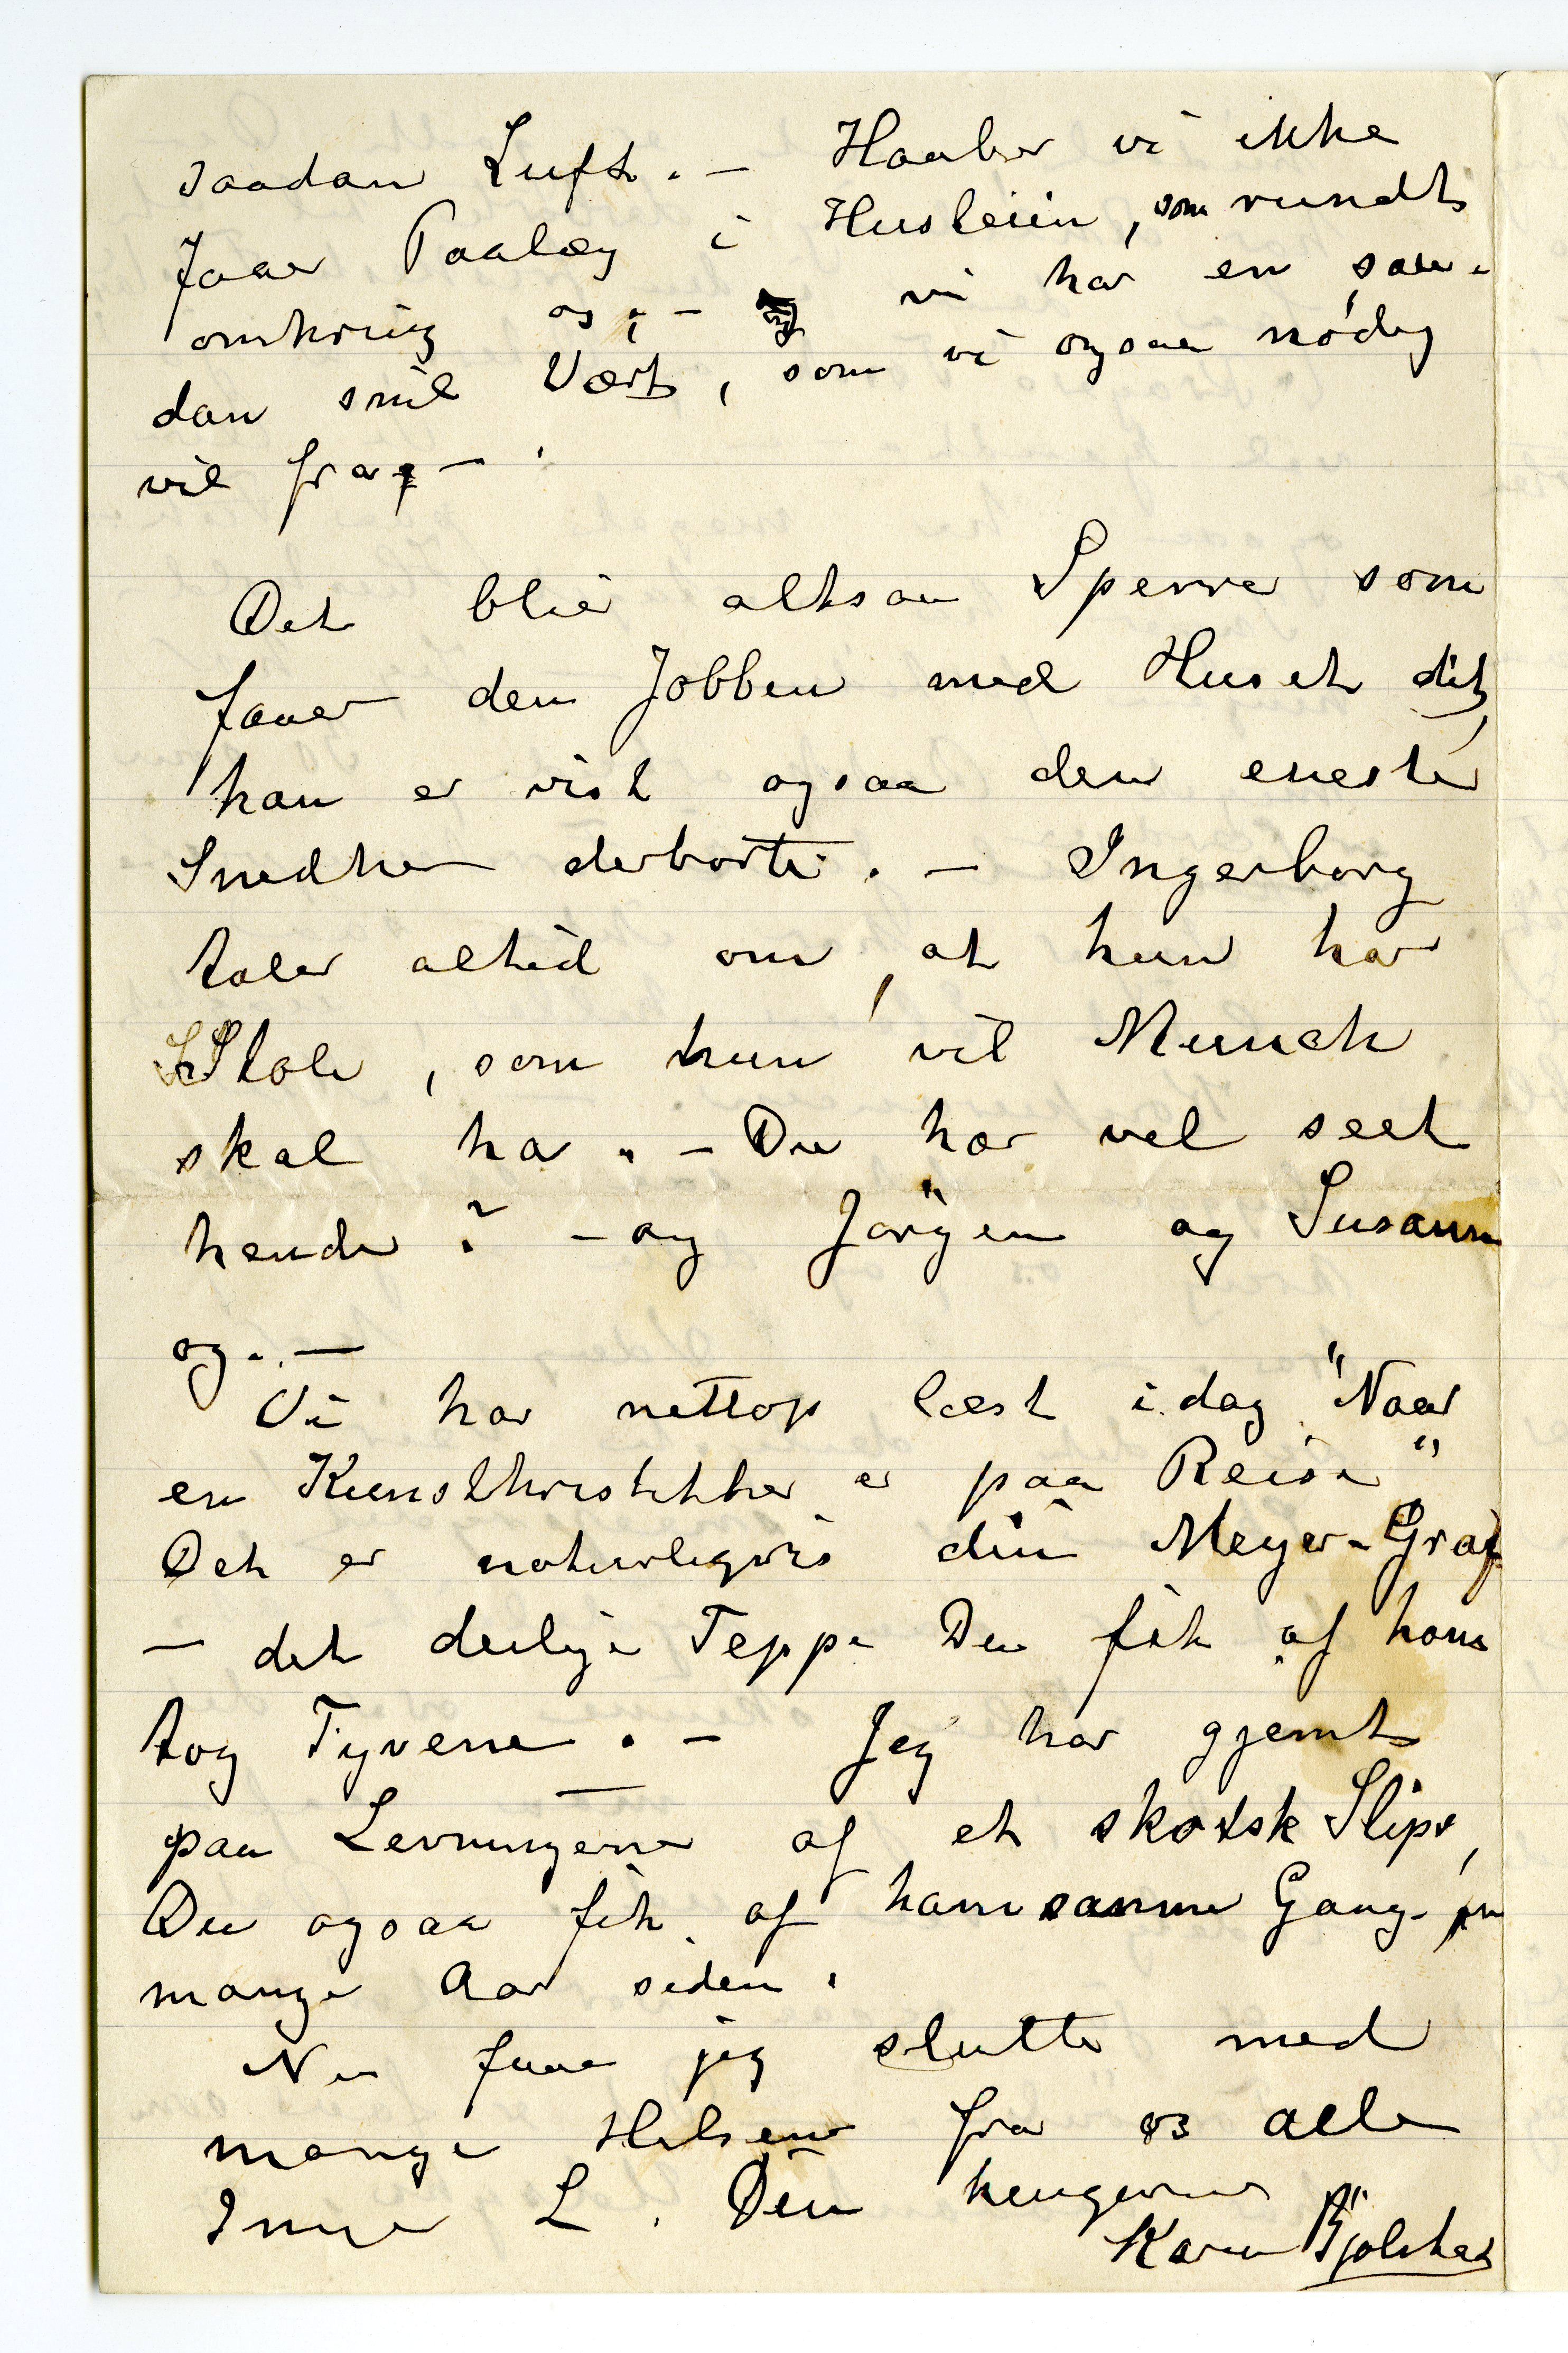 saadan Luft. – Haaber vi ikke
faaer Paalæg i Husleien, som rundt
omkring os, – vi har en saa-
dan snil Vært, som vi ogsaa nødig
vil fra, –
Det blir altsaa Sperre som
faaer den Jobben med Huset dit,
han er vist ogsaa den eneste
Snedker derborte. – Ingerborg
taler altid om, at hun har
Stole, som hun vil Munch
skal ha. – Du har vel seet
hende? – og Jörgen og Susanne
og. –
Vi har nettop læst idag "Naar
en Kunstkritikker er paa Reise"
Det er naturligvis din Meyer-Graf
– det deilige Teppe Du fik af ham
tog Tyvene. – Jeg har gjemt
paa Levningerne af et skotsk Slips,
Du ogsaa fik af ham samme Gang for
mange Aar siden.
Nu faaer jeg slutte med
mange Hilsener fra os alle
Inger L. Din hengivne
Karen Bjølstad